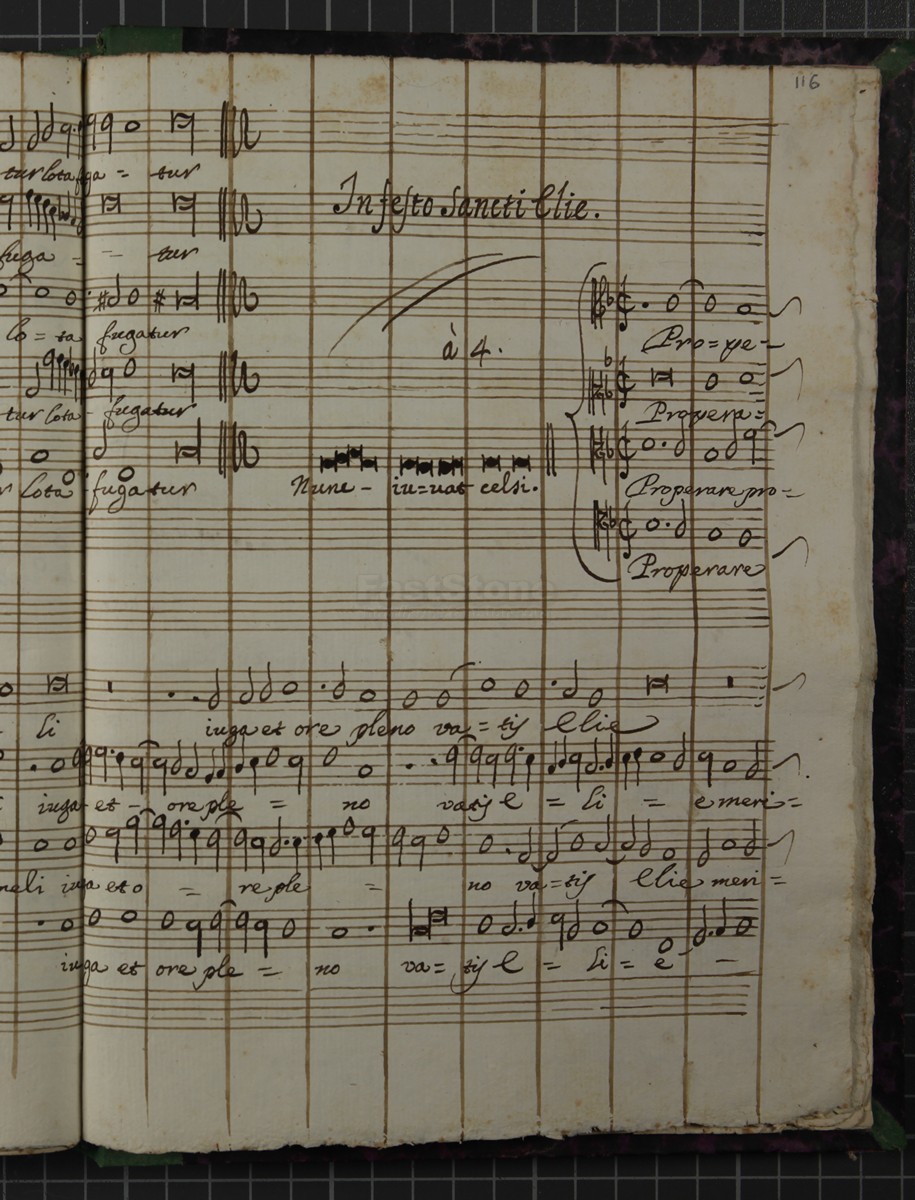 116
tur lota fuga = tur
In festo Sancti Elie.
fuga - - tur
lo = ta fugatur
à 4.
Pro = pe -
tur lota - fugatur
Propera =
lota fugatur
Nunc - iu=uat celsi.
Properare pro =
Properare
FastStone
li iuga et ore pleno va = tis Elie
iuga et - ore ple = no vatis E = li = e meri =
iuga et o = re ple = no va = tis Elie meri =
iuga et ore ple = no va = tis E = li = e -